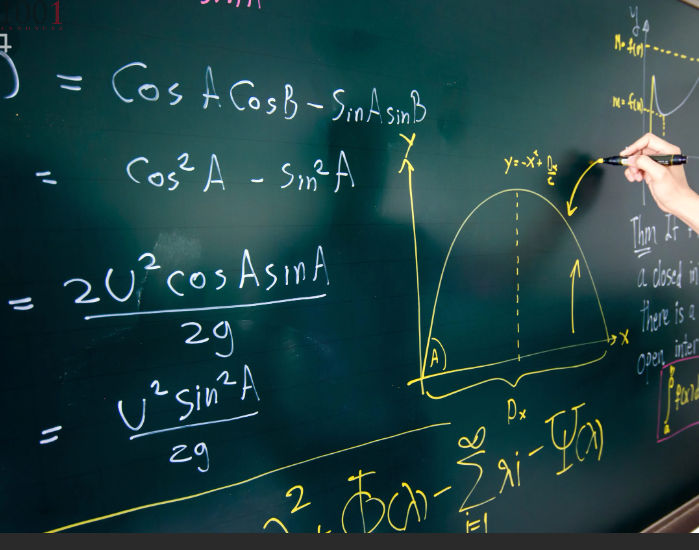 sinA
) = CosACosB-SinAsinB
= Cos²A - Sin²A
= 2U²cosAsinA / 2g
= U²sin²A / 2g
Y
y=-x²+Dx/2
A
X
Dx
y
M=f(M)
m=f(m)
Thm If
a closed in
there is a
open inter
∫ f(x)d
a
λ² + Φ(λ) - ∞ ∑ i=1 λi - Ψ(λ)